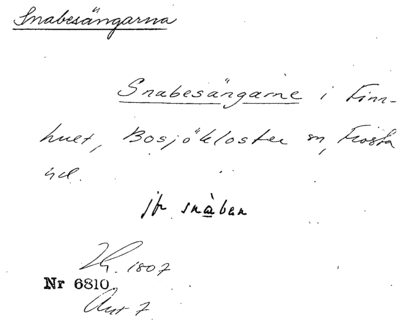 Snabesängarna
Snabesängarne i Finn-
hult, Bosjökloster sn, Frosta
hd.
jfr snàban
1807
Nr 6810
Akt 7